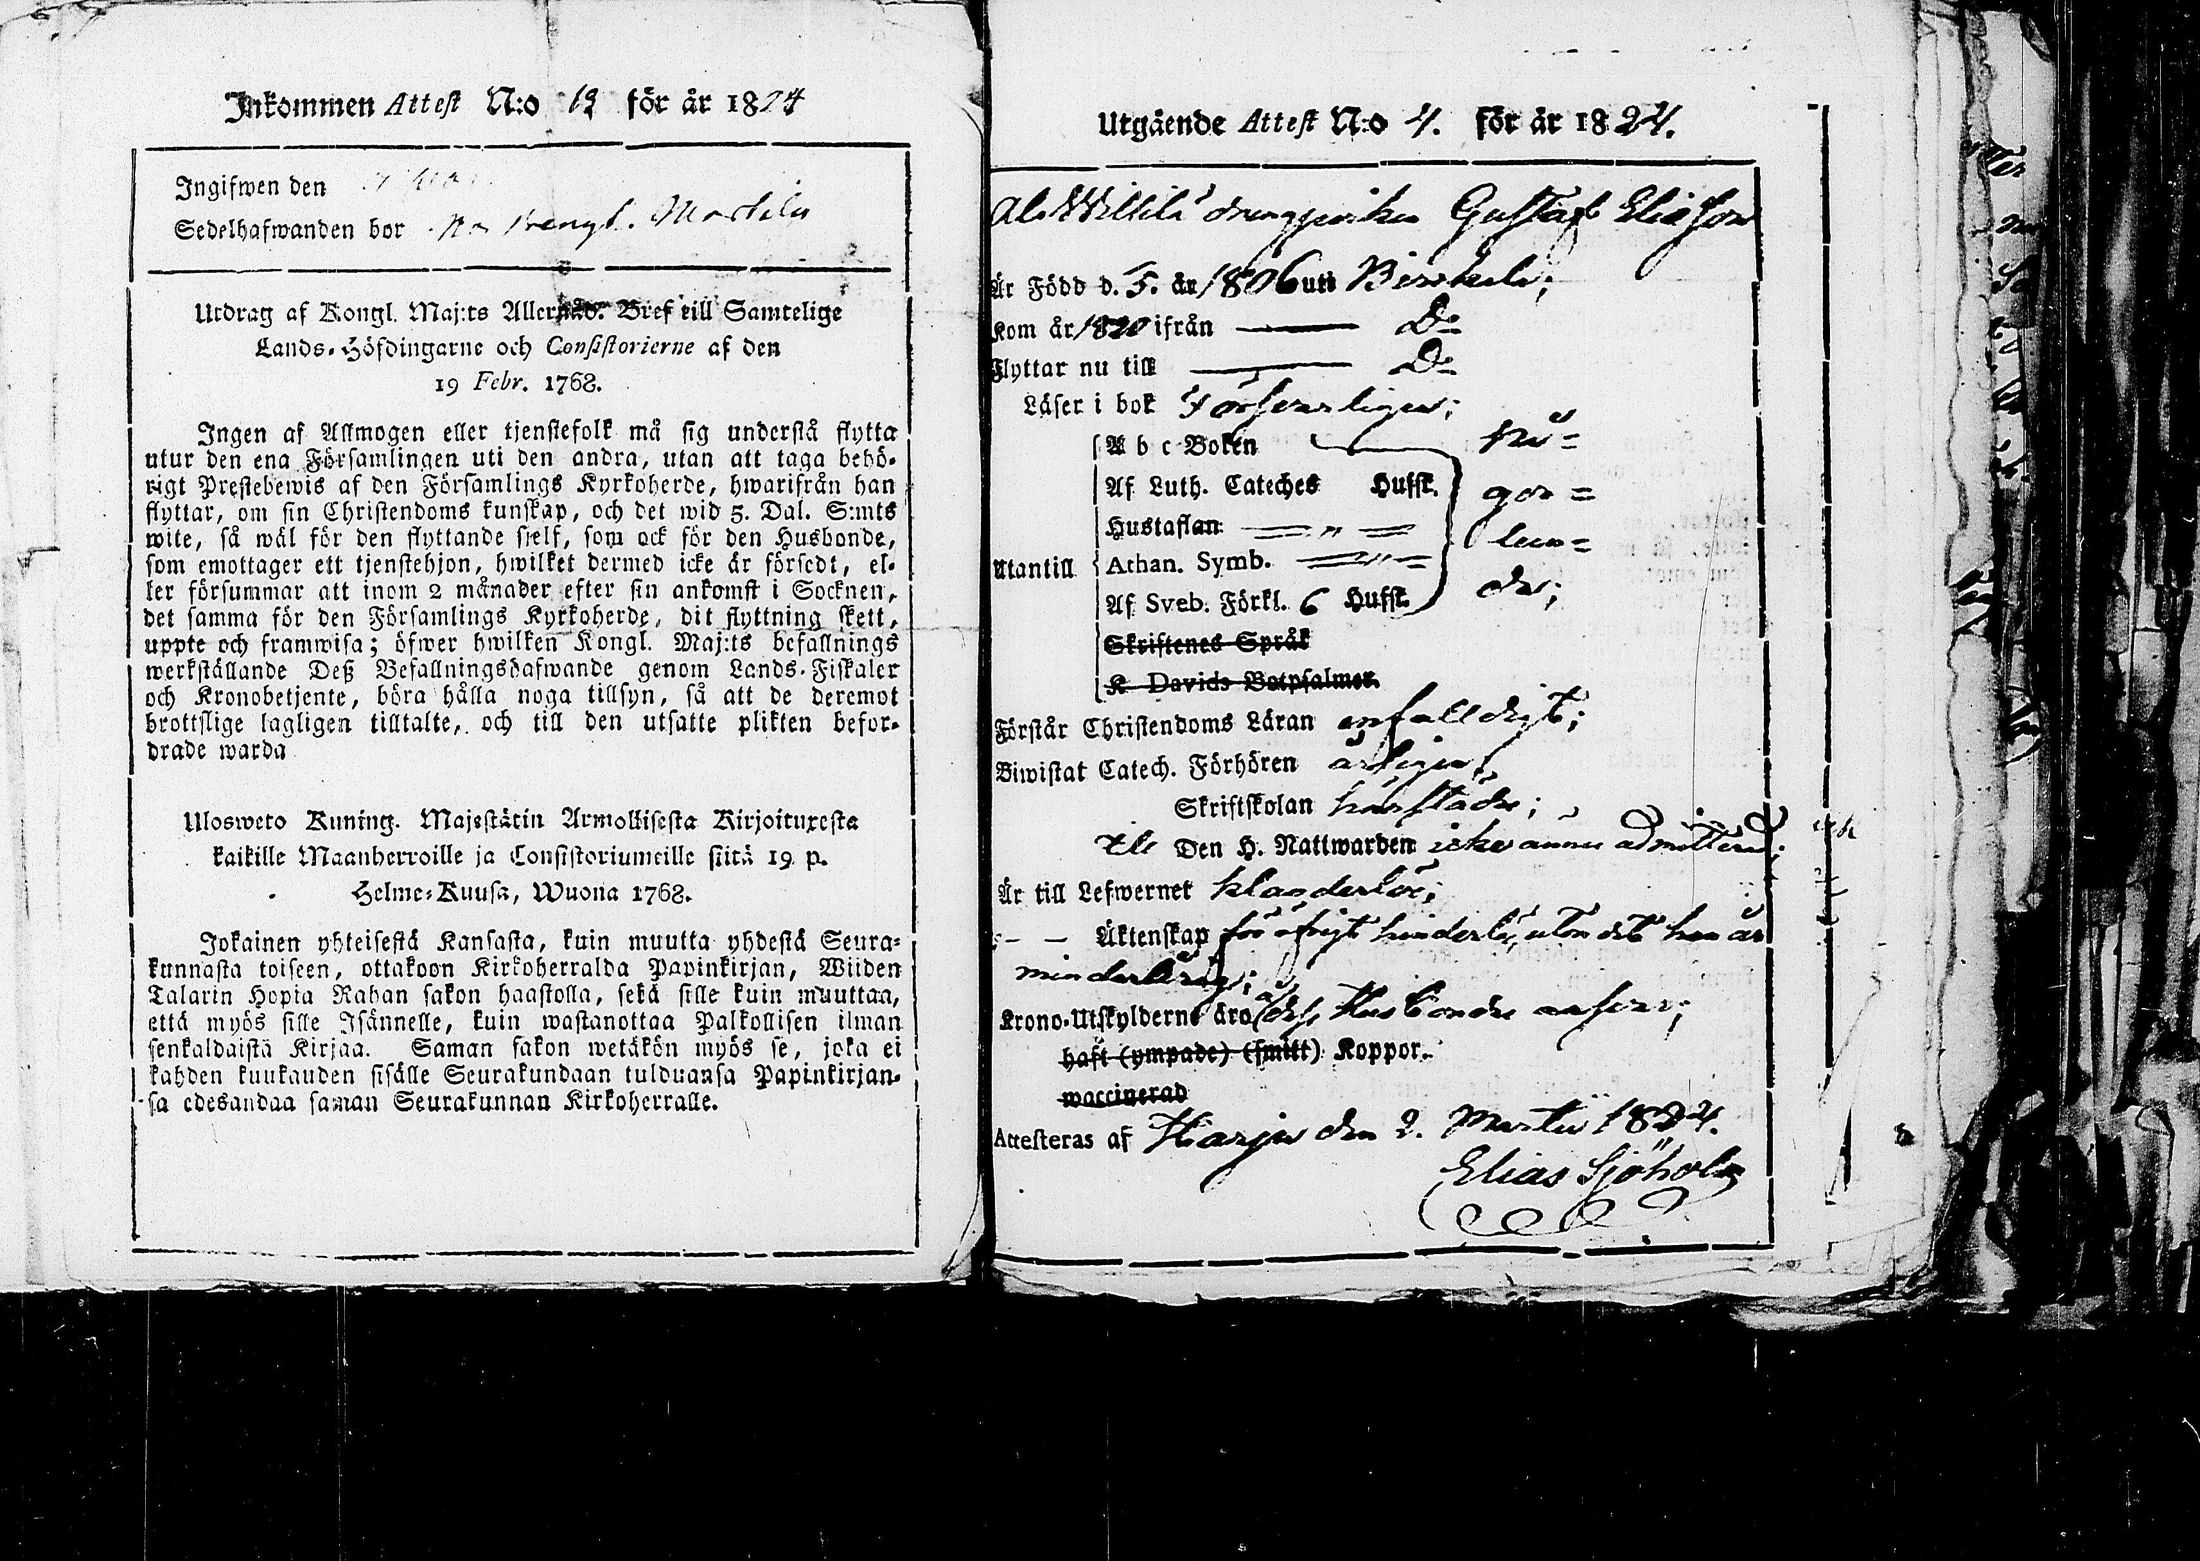 Inkommen Attest N:o 13 för år 1824
Ingifwen den
Sedelhafwanden bor Martila
Utdrag af Kongl. Maj:ts Allernåd. Bref till Samtelige
Lands-Höfdingarne och Consistorierne af den
19 Febr. 1768.
Ingen af Allmogen eller tjenstefolk må sig understå flytta
utur den ena Församlingen uti den andra, utan att taga behö-
rigt Prestebewis af den Församlings Kyrkoherde, hwarifrån han
flyttar, om sin Christendoms kunskap, och det wid 5. Dal. S:mts
wite, så wäl för den flyttande sjelf, som ock för den Husbonde,
som emottager ett tjenstehjon, hwilket dermed icke är försedt, el-
ler försummar att inom 2 månader efter sin ankomst i Socknen,
det samma för den Församlings Kyrkoherde, dit flyttning skett,
uppte och framwisa; öfwer hwilken Kongl. Maj:ts befallnings
werkställande Deß Befallningshafwande genom Lands-Fiskaler
och Kronobetjente, böra hålla noga tillsyn, så att de deremot
brottslige lagligen tilltalte, och till den utsatte plikten befor-
drade warda
Ulosweto Kuning. Majestätin Armollisesta Kirjoituxesta
kaikille Maanherroille ja Consistoriumeille siitä 19 p.
Helme-Kuusa, Wuona 1768.
Jokainen yhteisestä Kansasta, kuin muutta yhdestä Seura-
kunnasta toiseen, ottakoon Kirkoherralda Papinkirjan, Wiiden
Talarin Hopia Rahan sakon haastolla, sekä sille kuin muuttaa,
että myös sille Isännelle, kuin wastanottaa Palkollisen ilman
senkaldaista Kirjaa. Saman sakon wetäkön myös se, joka ei
kahden kuukauden sisälle Seurakundaan tulduansa Papinkirjan-
sa edesandaa saman Seurakunnan Kirkoherralle.
Utgående Attest N:o 4. för år 1824.
Gustaf Eliasson
Är Född d. 5. år 1806 uti Birkala;
Kom år 1820 ifrån — Do
Flyttar nu till — Do
Läser i bok Försvarligen;
A b c Boken nå=
Af Luth. Cateches Hufst. gor=
Hustaflan — " — lun=
Utantill Athan. Symb. — " — da;
Af Sveb. Förkl. 6 Hufst.
Skriftenes Språk
K Davids Botpsalmer.
Förstår Christendoms Läran enfalldigt;
Biwistat Catech. Förhören årligen;
Skriftskolan härstädes;
till Den H. Nattwarden icke ännu admitterad;
Är till Lefwernet klanderlös;
— — Äktenskap för öfrigt hinderlös, utom det han är
minderårig;
Krono-Utskylderne äro af dess Husbonde ansvar;
haft (ympade) (smitt) Koppor.
waccinerad
Attesteras af Harju den 2. Martii 1824.
Elias Sjöholm